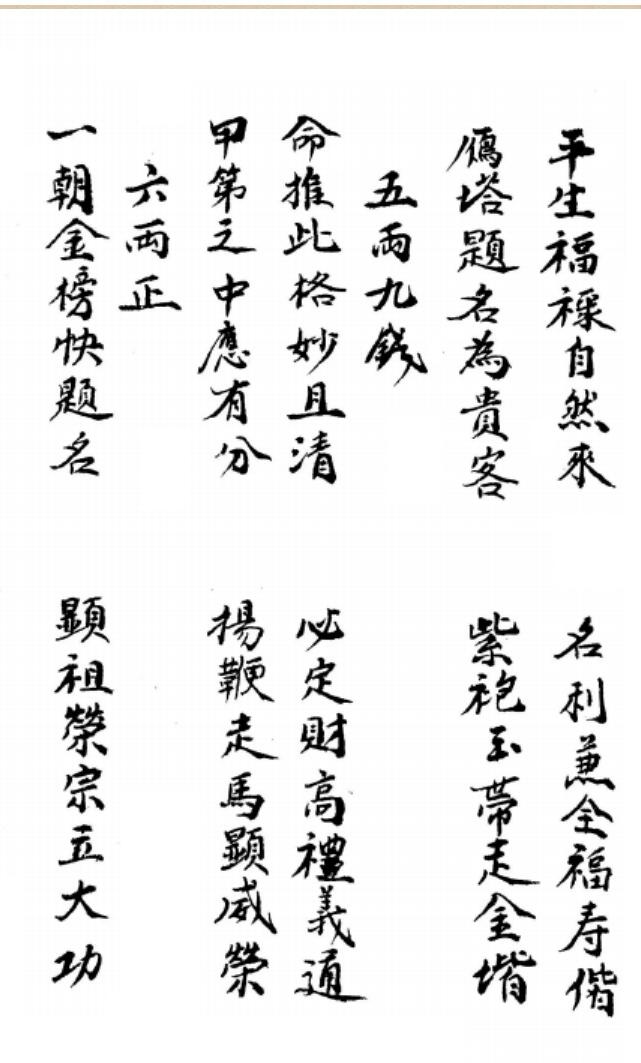 平生福祿自然來 名利兼全福寿偕
鴈塔題名為貴客 紫袍玉帶走金堦
五兩九錢
命推此格妙且清 必定財高禮義通
甲第之中應有分 揚鞭走馬顯威榮
六兩正
一朝金榜快題名 顯祖榮宗立大功